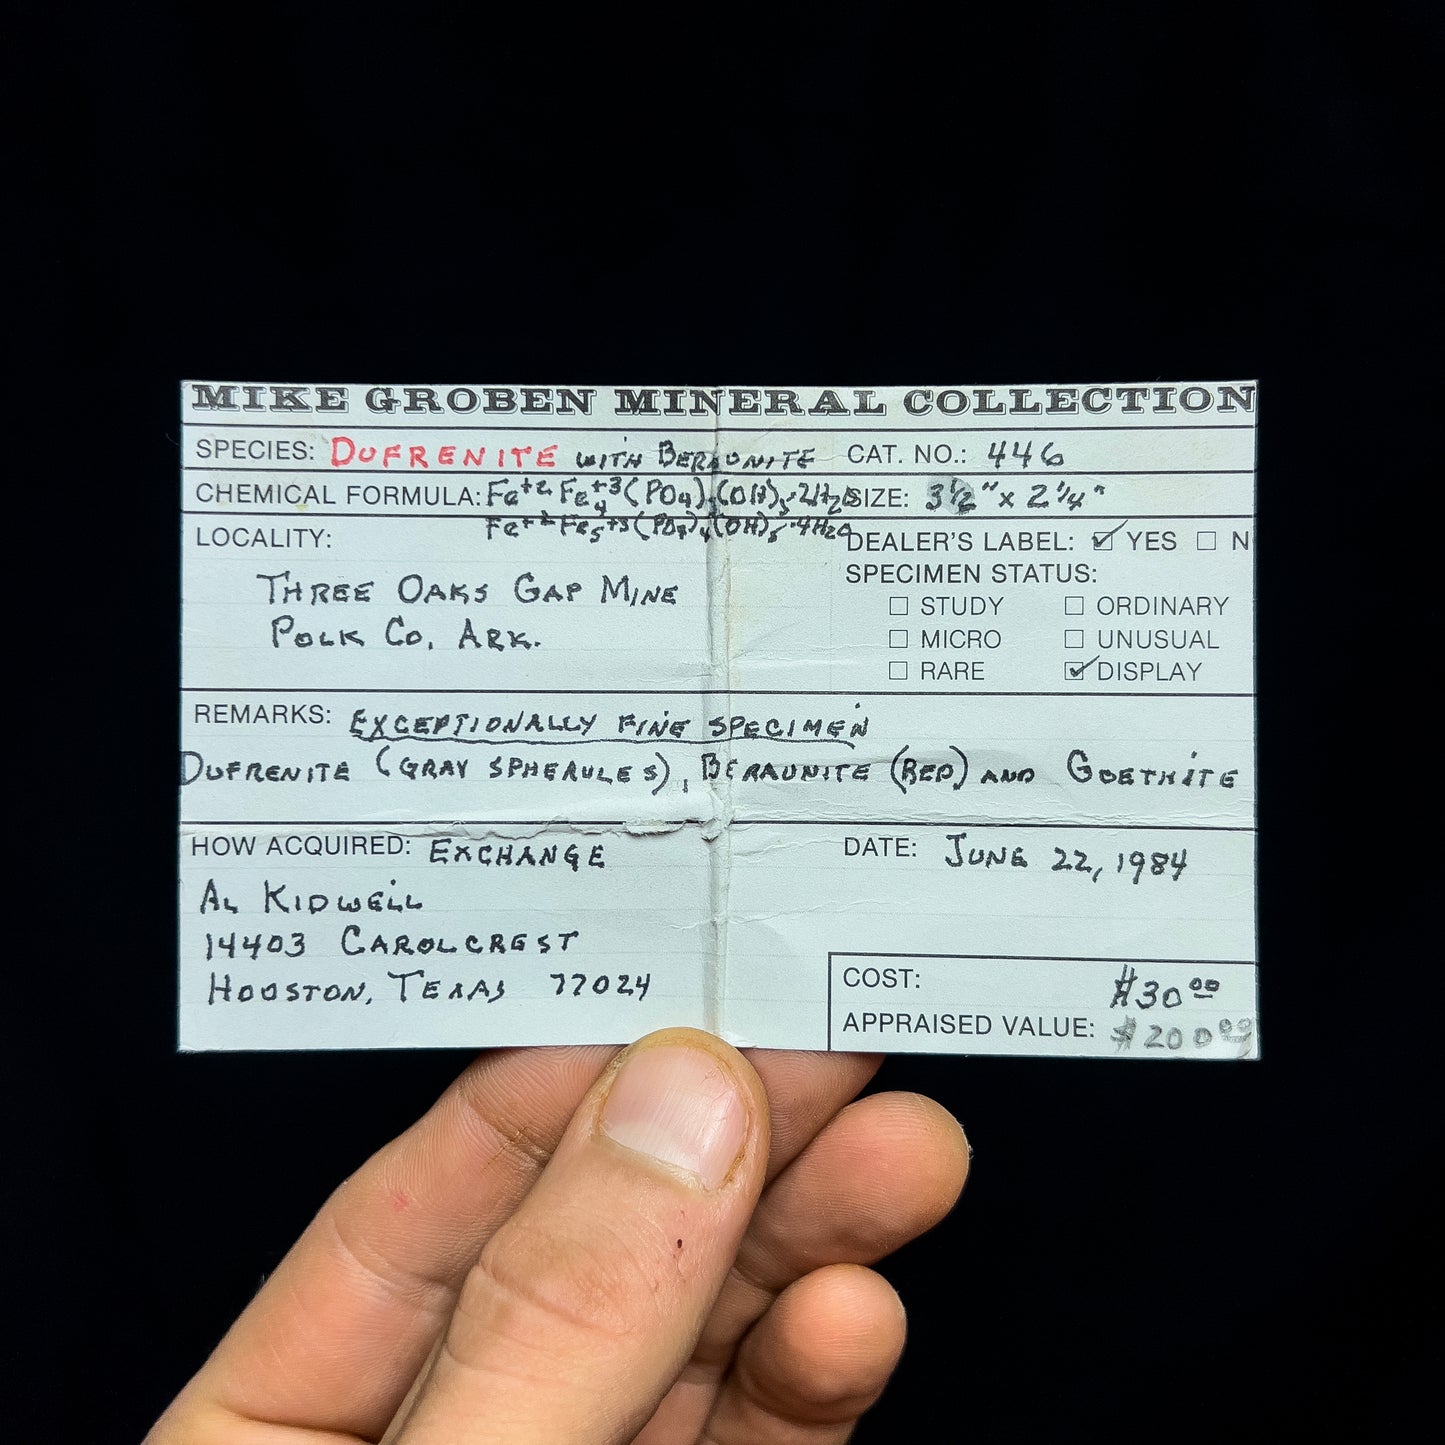 MIKE GROBEN MINERAL COLLECTION
SPECIES: DUFRENITE WITH BERAUNITE CAT. NO.: 446
CHEMICAL FORMULA: Fe+2 Fe4+3(PO4)3(OH)5·2H2O SIZE: 3½" x 2¼"
Fe+2 Fe5+3(PO4)4(OH)5·4H2O
LOCALITY: DEALER'S LABEL: ☑ YES ☐ N
SPECIMEN STATUS:
THREE OAKS GAP MINE ☐ STUDY ☐ ORDINARY
POLK CO, ARK. ☐ MICRO ☐ UNUSUAL
☐ RARE ☑ DISPLAY
REMARKS: EXCEPTIONALLY FINE SPECIMEN
DUFRENITE (GRAY SPHERULES), BERAUNITE (RED) AND GOETHITE
HOW ACQUIRED: EXCHANGE DATE: JUNE 22, 1984
AL KIDWELL
14403 CAROLCREST
HOUSTON, TEXAS 77024
COST: $30.00
APPRAISED VALUE: $200.00